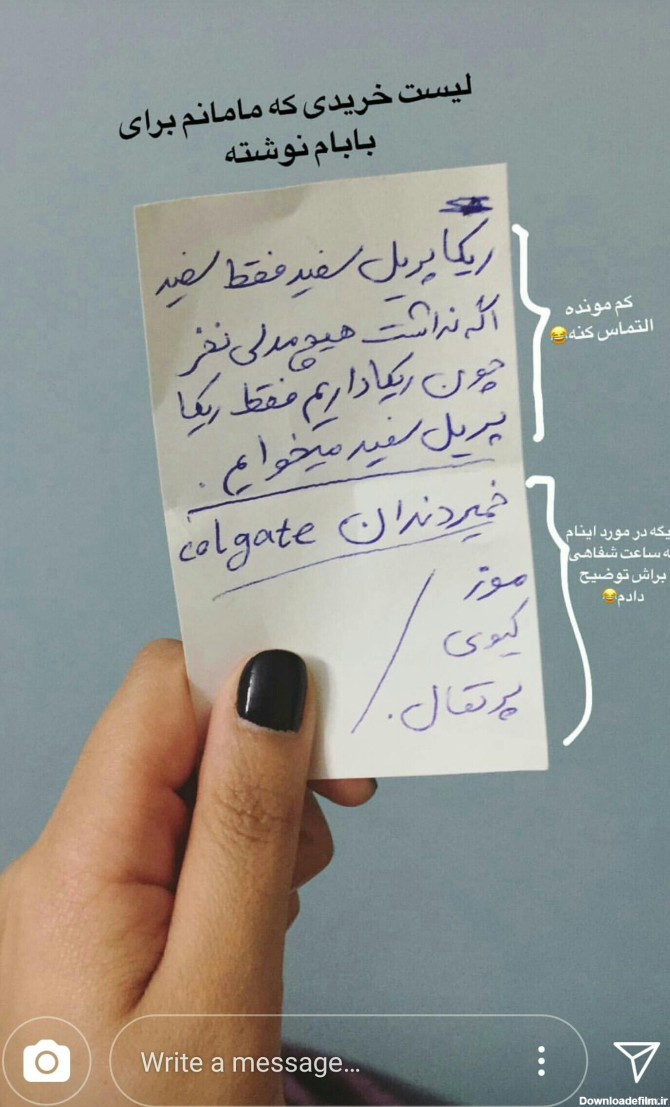 لیست خریدی که مامانم برای
بابام نوشته
ریکا پریل سفید فقط سفید
اگه نداشت هیچ مدلی نخر
چون ریکا داریم فقط ریکا
پریل سفید میخوایم.
خمیردندان colgate
موز
کیوی
پرتقال.
کم مونده
التماس کنه😂
یگه در مورد اینام
ه ساعت شفاهی
براش توضیح
دادم😂
Write a message...
Downloadefilm.ir